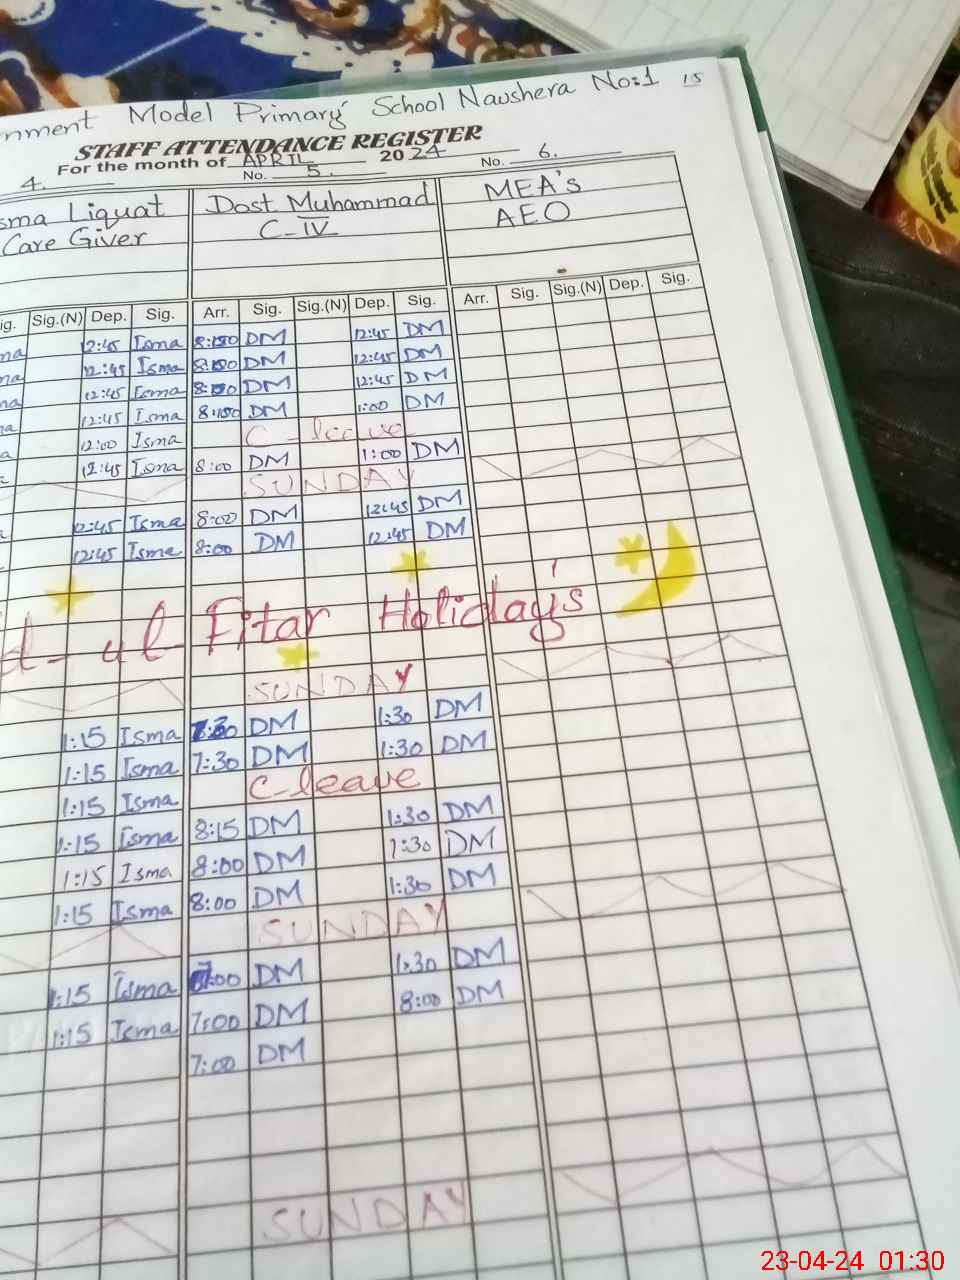 rnment Model Primary School Nawshera No:1 15
STAFF ATTENDANCE REGISTER
For the month of APRIL 2024
4. No. 5. No. 6.
sma Liquat Dost Muhammad MEA's
Care Giver C-IV AEO
ig. Sig.(N) Dep. Sig. Arr. Sig. Sig.(N) Dep. Sig. Arr. Sig. Sig.(N) Dep. Sig.
ma 12:45 Isma DM 12:45 DM
ma 12:45 Isma DM 12:45 DM
ma 12:45 Isma DM 12:45 DM
a 12:45 Isma DM 1:00 DM
a 12:00 Isma C-leave
a 12:45 Isma 8:00 DM 1:00 DM
SUNDAY
12:45 Isma 8:00 DM 12:45 DM
12:45 Isma 8:00 DM 12:45 DM
d-ul-Fitar Holiday's
SUNDAY
1:15 Isma DM 1:30 DM
1:15 Isma 7:30 DM 1:30 DM
1:15 Isma C-leave
1:15 Isma 8:15 DM 1:30 DM
1:15 Isma 8:00 DM 1:30 DM
1:15 Isma 8:00 DM 1:30 DM
SUNDAY
1:15 Isma DM 1:30 DM
1:15 Isma 7:00 DM 8:00 DM
7:00 DM
SUNDAY
23-04-24 01:30